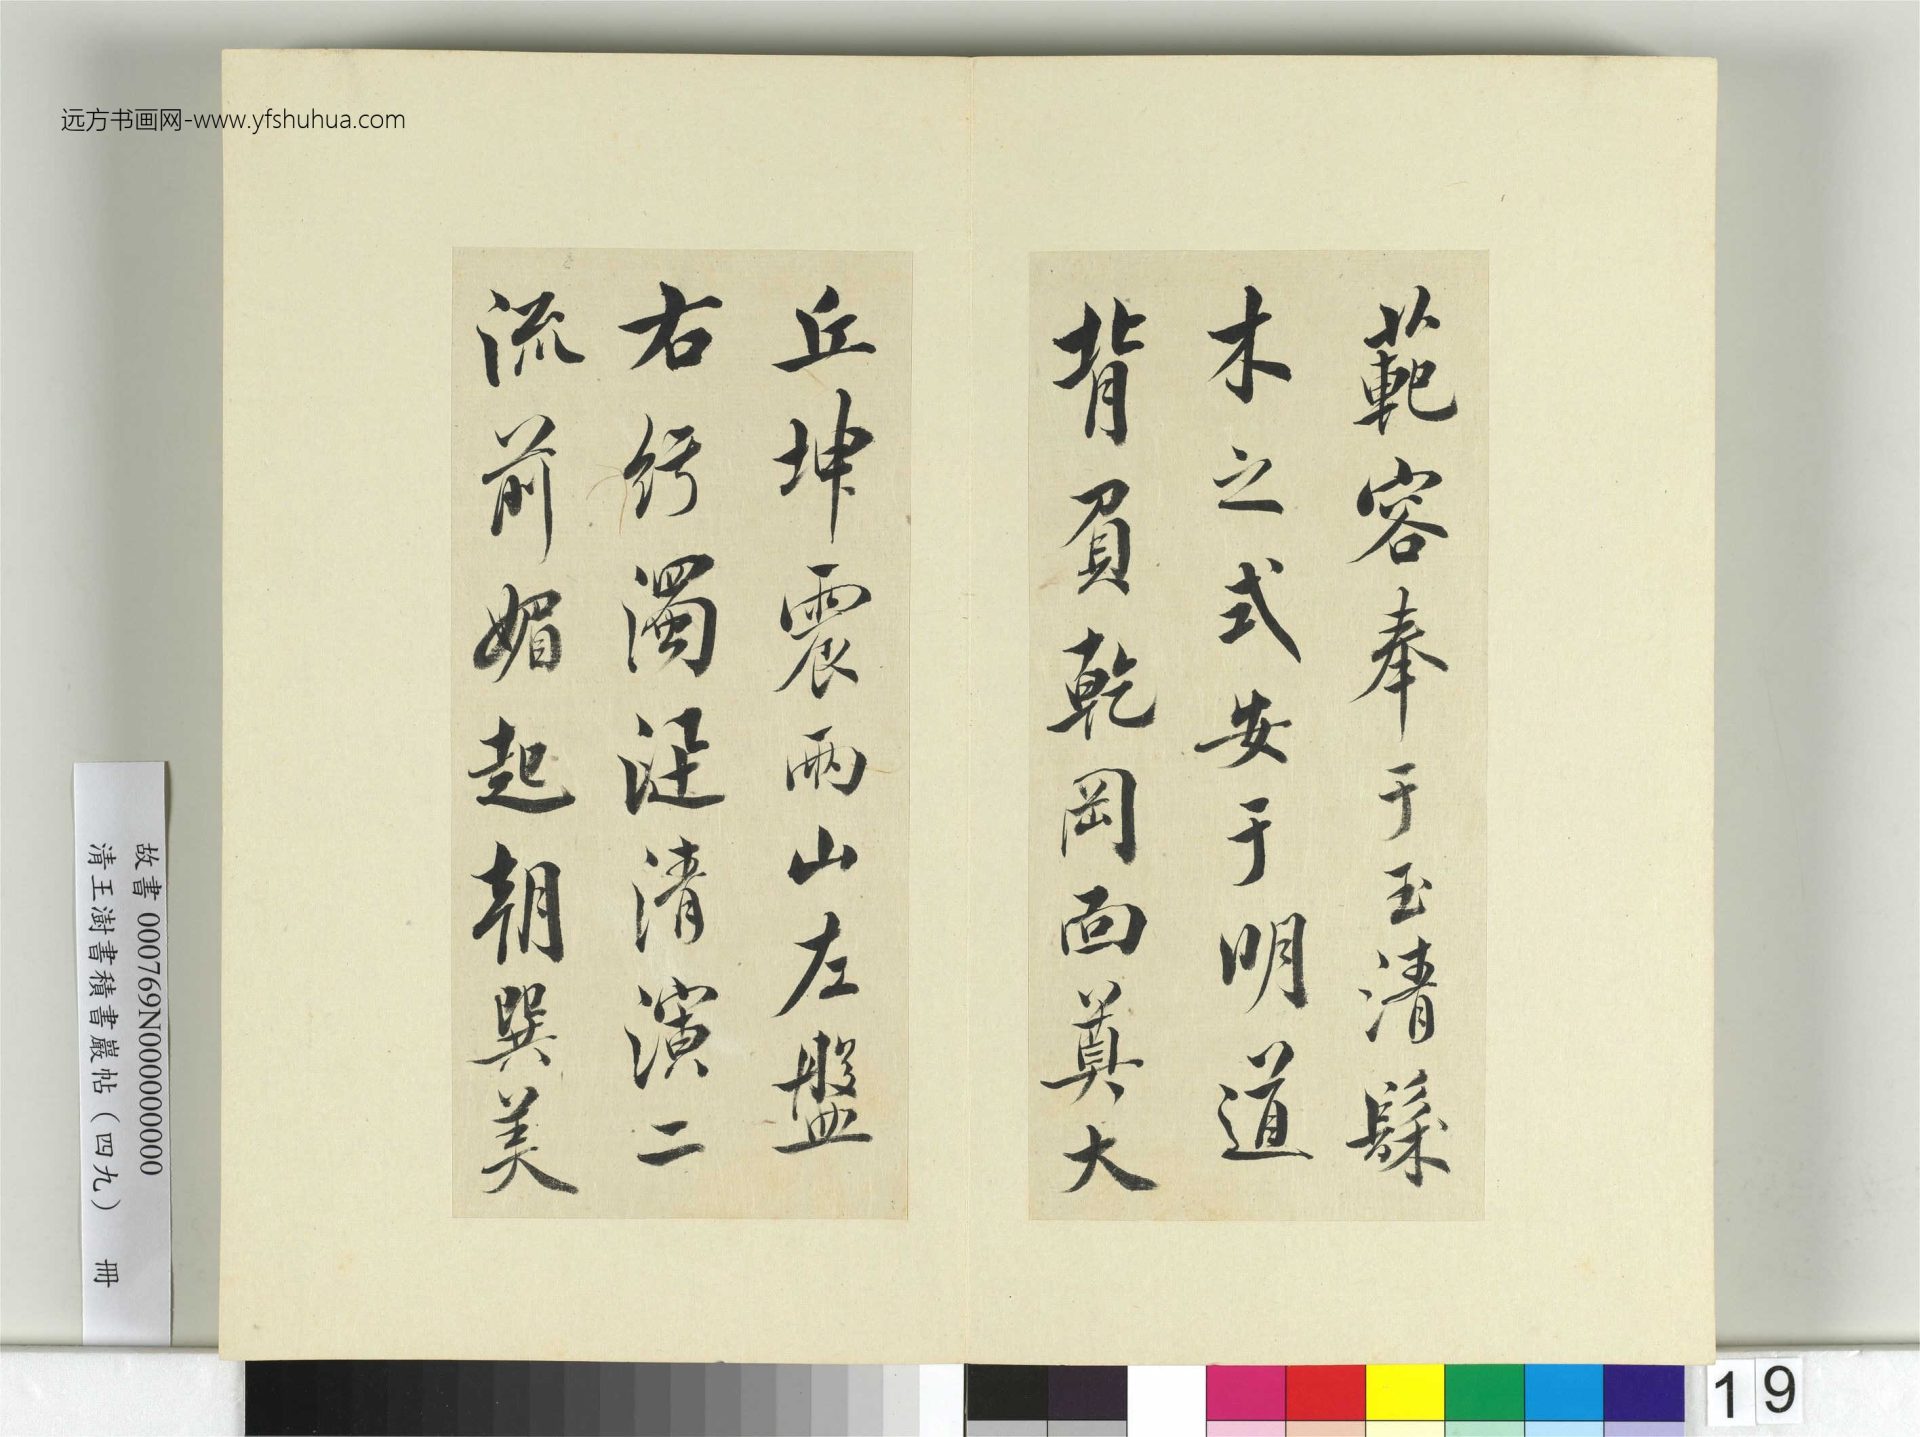 远方书画网-www.yfshuhua.com
範容奉于玉清髹
木之式安于明道
背負乾岡面奠大
丘坤震兩山左盤
右紆濁涇清演二
流前媚起朝巽美
故書 000769N000000000
清王澍書積書巖帖(四九) 冊
19